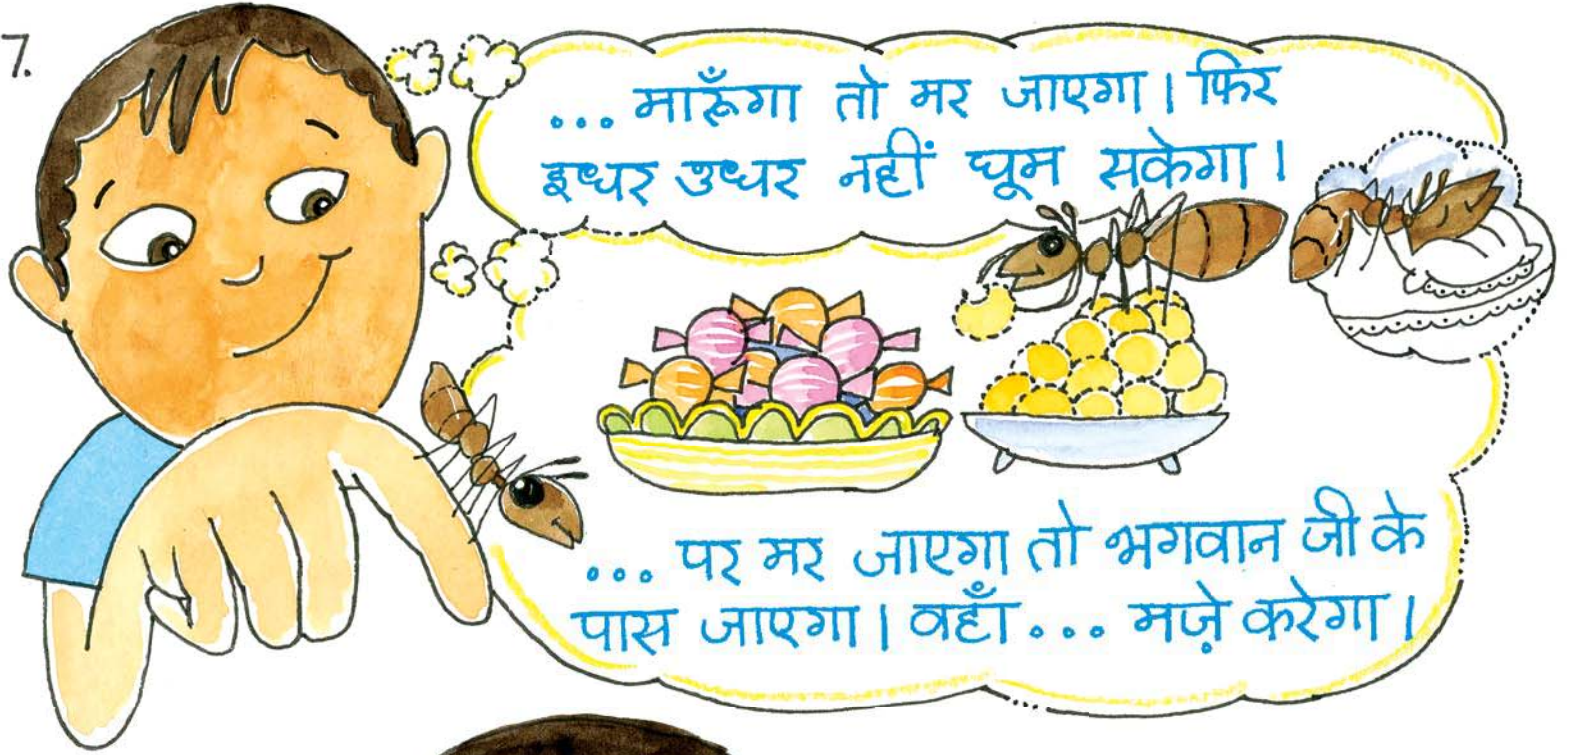 7.
... मारूँगा तो मर जाएगा। फिर
इधर उधर नहीं घूम सकेगा।
... पर मर जाएगा तो भगवान जी के
पास जाएगा। वहाँ ... मज़े करेगा।